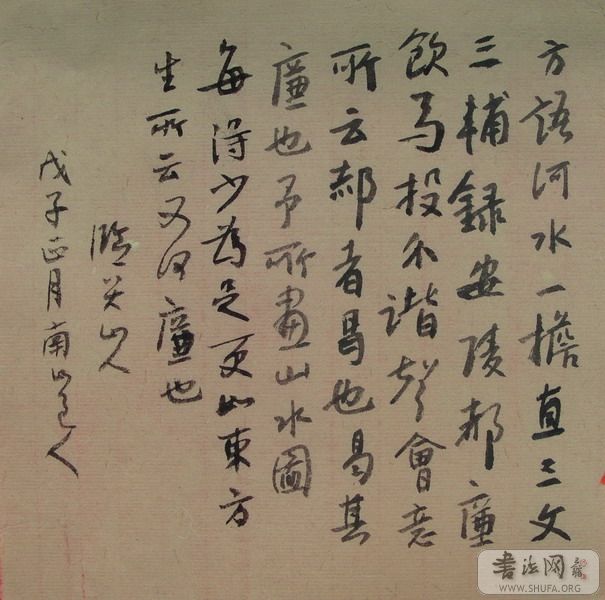 方語河水一擔直三文
三輔録安陵郝廉
飲馬投不諧聲會意
所云郝者曷也曷其
廉也予所畫山水圖
每得少為足更如東方
生所云又何廉也
臨八大山人
戊子正月南山道人
書法网
WWW.SHUFA.ORG